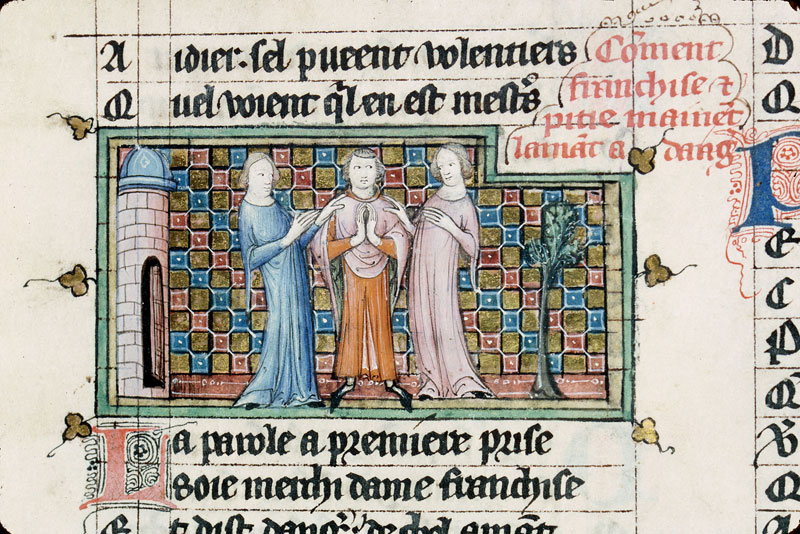 A idier. sel pueent volentiers
Q uel voient ql en est mest
Coment
franchise &
pitie mainet
lamāt a dang
L a parole a premiere prise
Soie merchi dame franchise
Et dist dang de chel amāt
D
Q
P
E
C
P
Q
V
Q